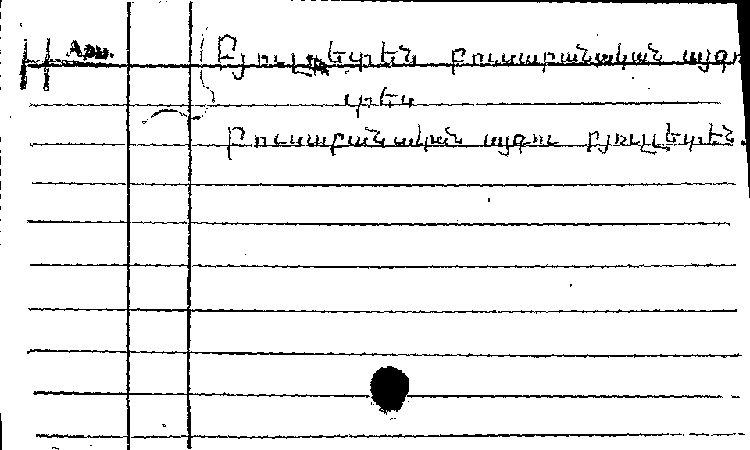 Արm.
Բյուլետեն բուսաբանական այգու
տես
Բուսաբանական այգու բյուլլետեն.